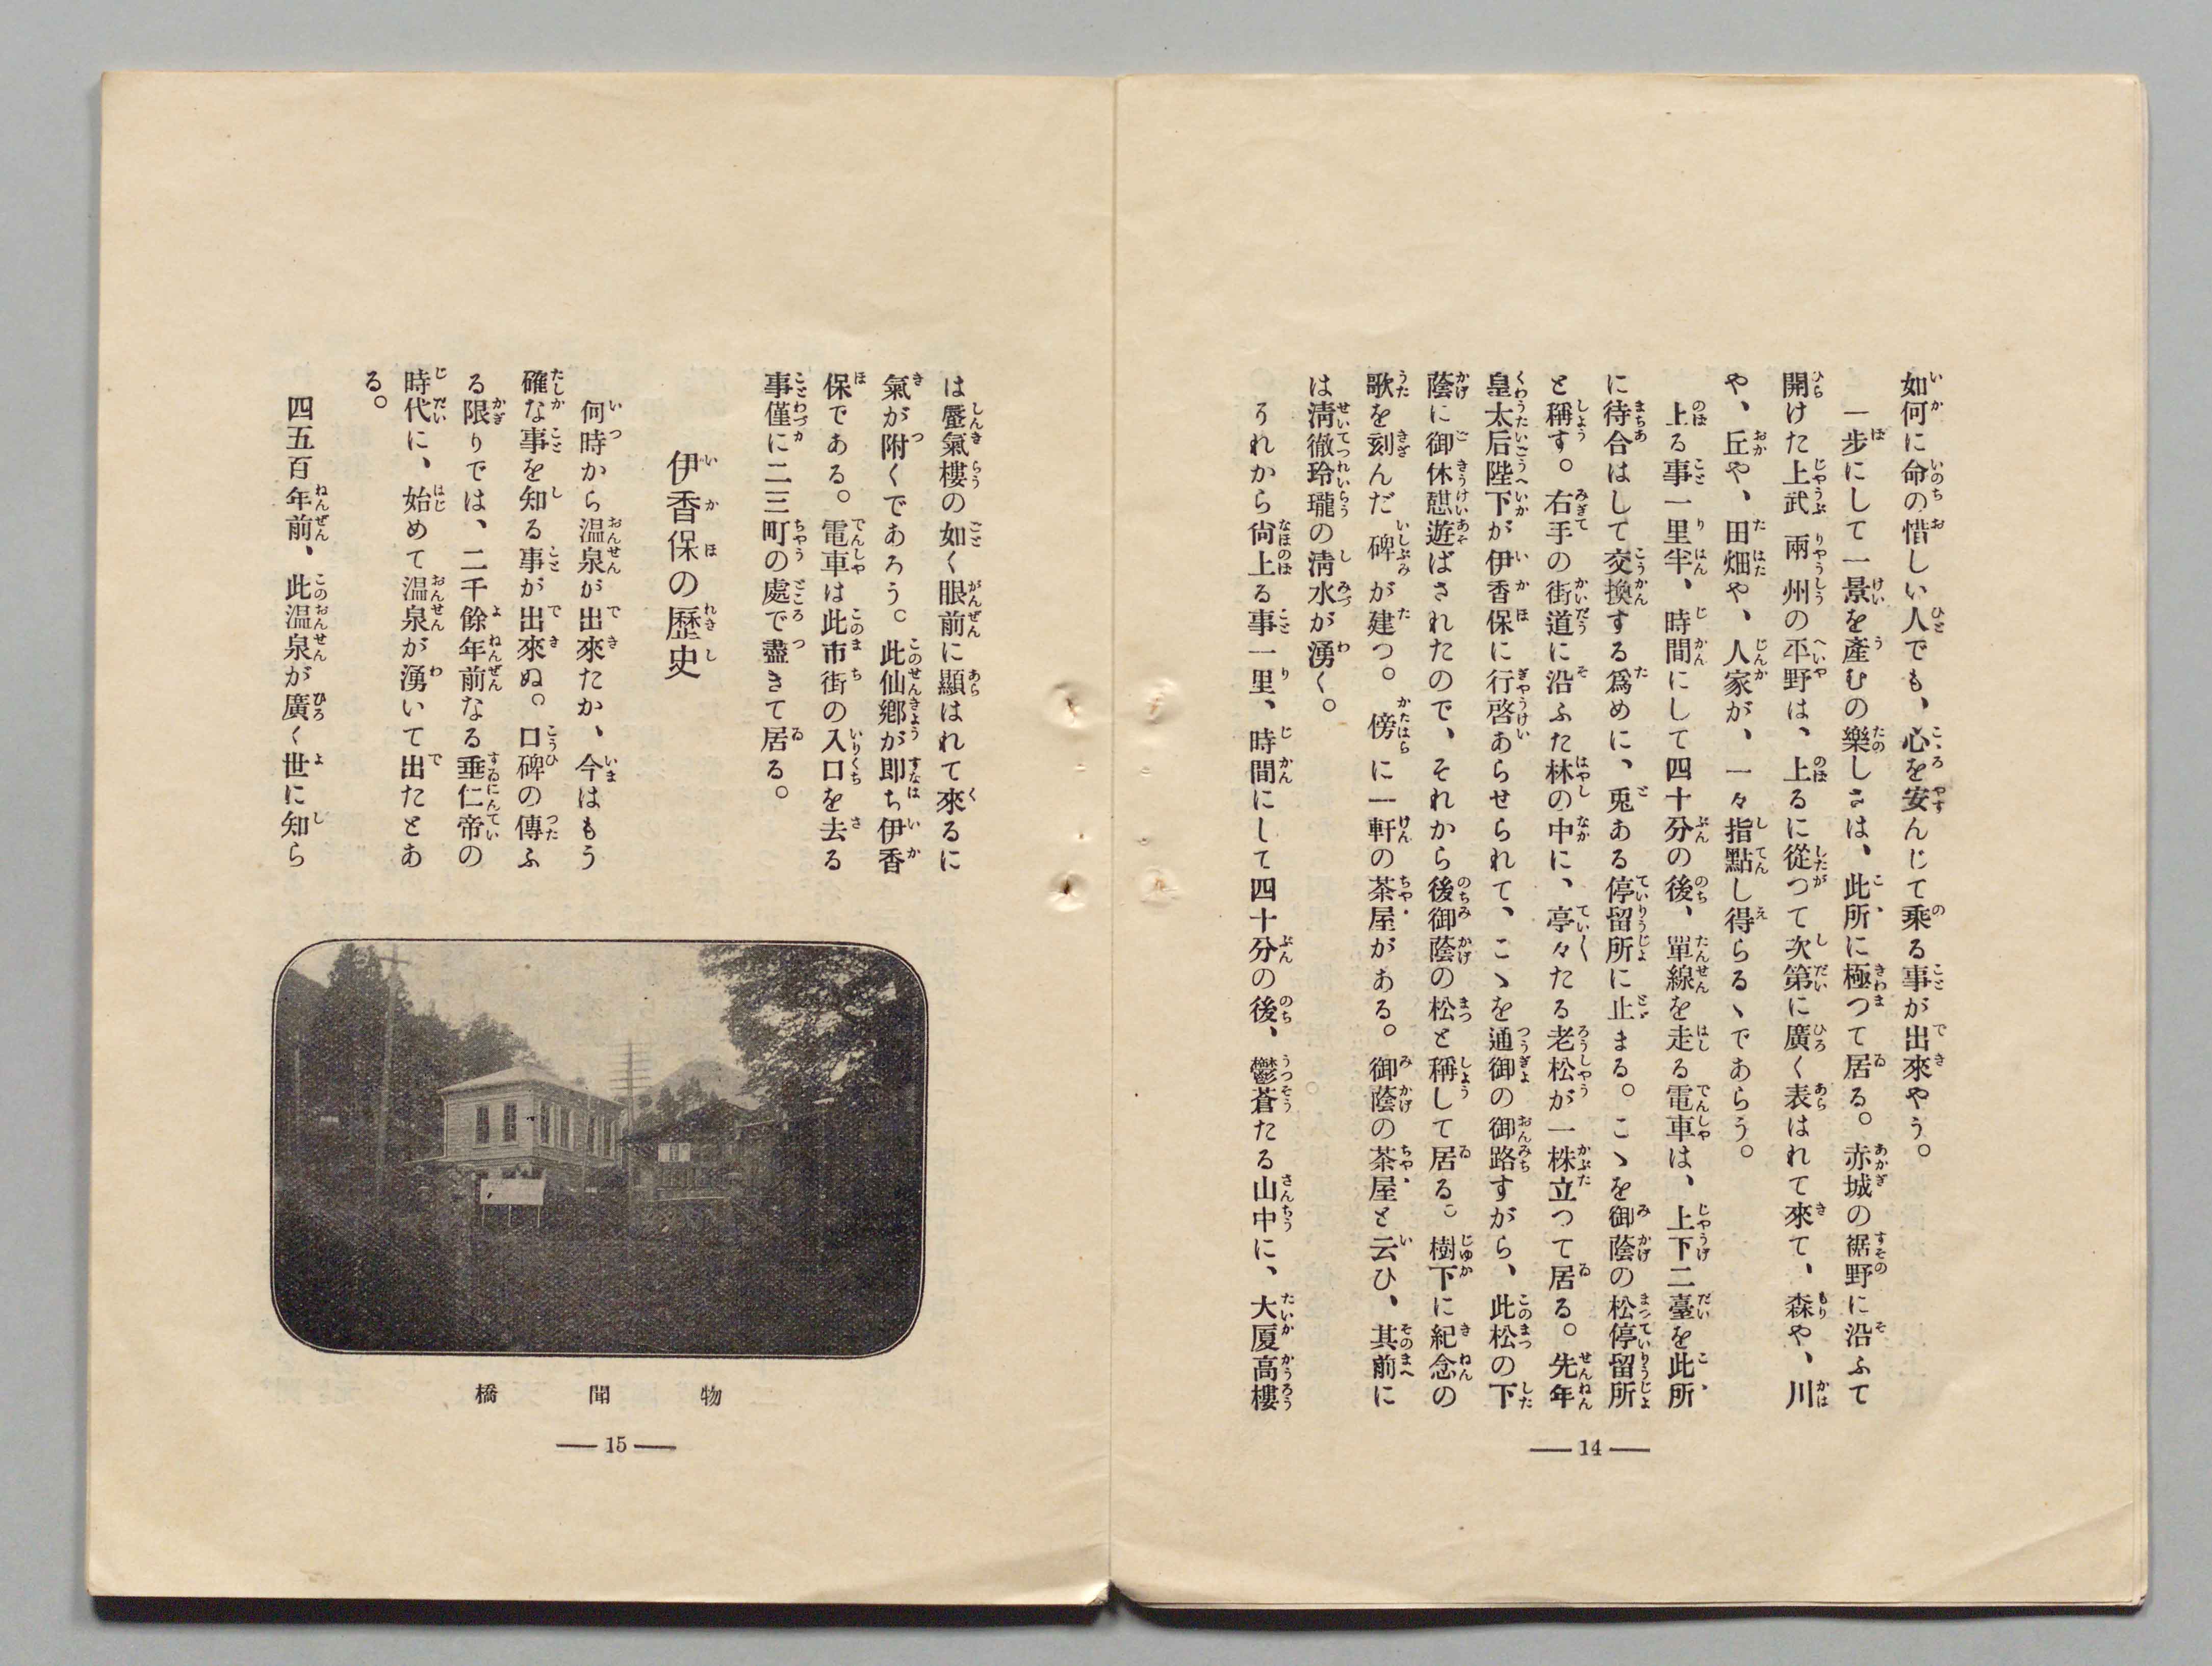 如何に命の惜しい人でも、心を安んじて乘る事が出來やう。
一步にして一景を產むの樂しさは、此所に極つて居る。赤城の裾野に沿ふて
開けた上武兩州の平野は、上るに從つて次第に廣く表はれて來て、森や、川
や、丘や、田畑や、人家が、一々指點し得らるゝであらう。
上る事一里半、時間にして四十分の後、單線を走る電車は、上下二臺を此所
に待合はして交換する爲めに、兎ある停留所に止まる。こゝを御蔭の松停留所
と稱す。右手の街道に沿ふた林の中に、亭々たる老松が一株立つて居る。先年
皇太后陛下が伊香保に行啓あらせられて、こゝを通御の御路すがら、此松の下
蔭に御休憇遊ばされたので、それから後御蔭の松と稱して居る。樹下に紀念の
歌を刻んだ碑が建つ。傍に一軒の茶屋がある。御蔭の茶屋と云ひ、其前に
は淸徹玲瓏の淸水が湧く。
それから尙上る事一里、時間にして四十分の後、鬱蒼たる山中に、大厦高樓
— 14 —
は蜃氣樓の如く眼前に顯はれて來るに
氣が附くであろう。此仙鄕が卽ち伊香
保である。電車は此市街の入口を去る
事僅に二三町の處で盡きて居る。
伊香保の歷史
何時から温泉が出來たか、今はもう
確な事を知る事が出來ぬ。口碑の傳ふ
る限りでは、二千餘年前なる垂仁帝の
時代に、始めて温泉が湧いて出たとあ
る。
四五百年前、此温泉が廣く世に知ら
物聞橋
— 15 —